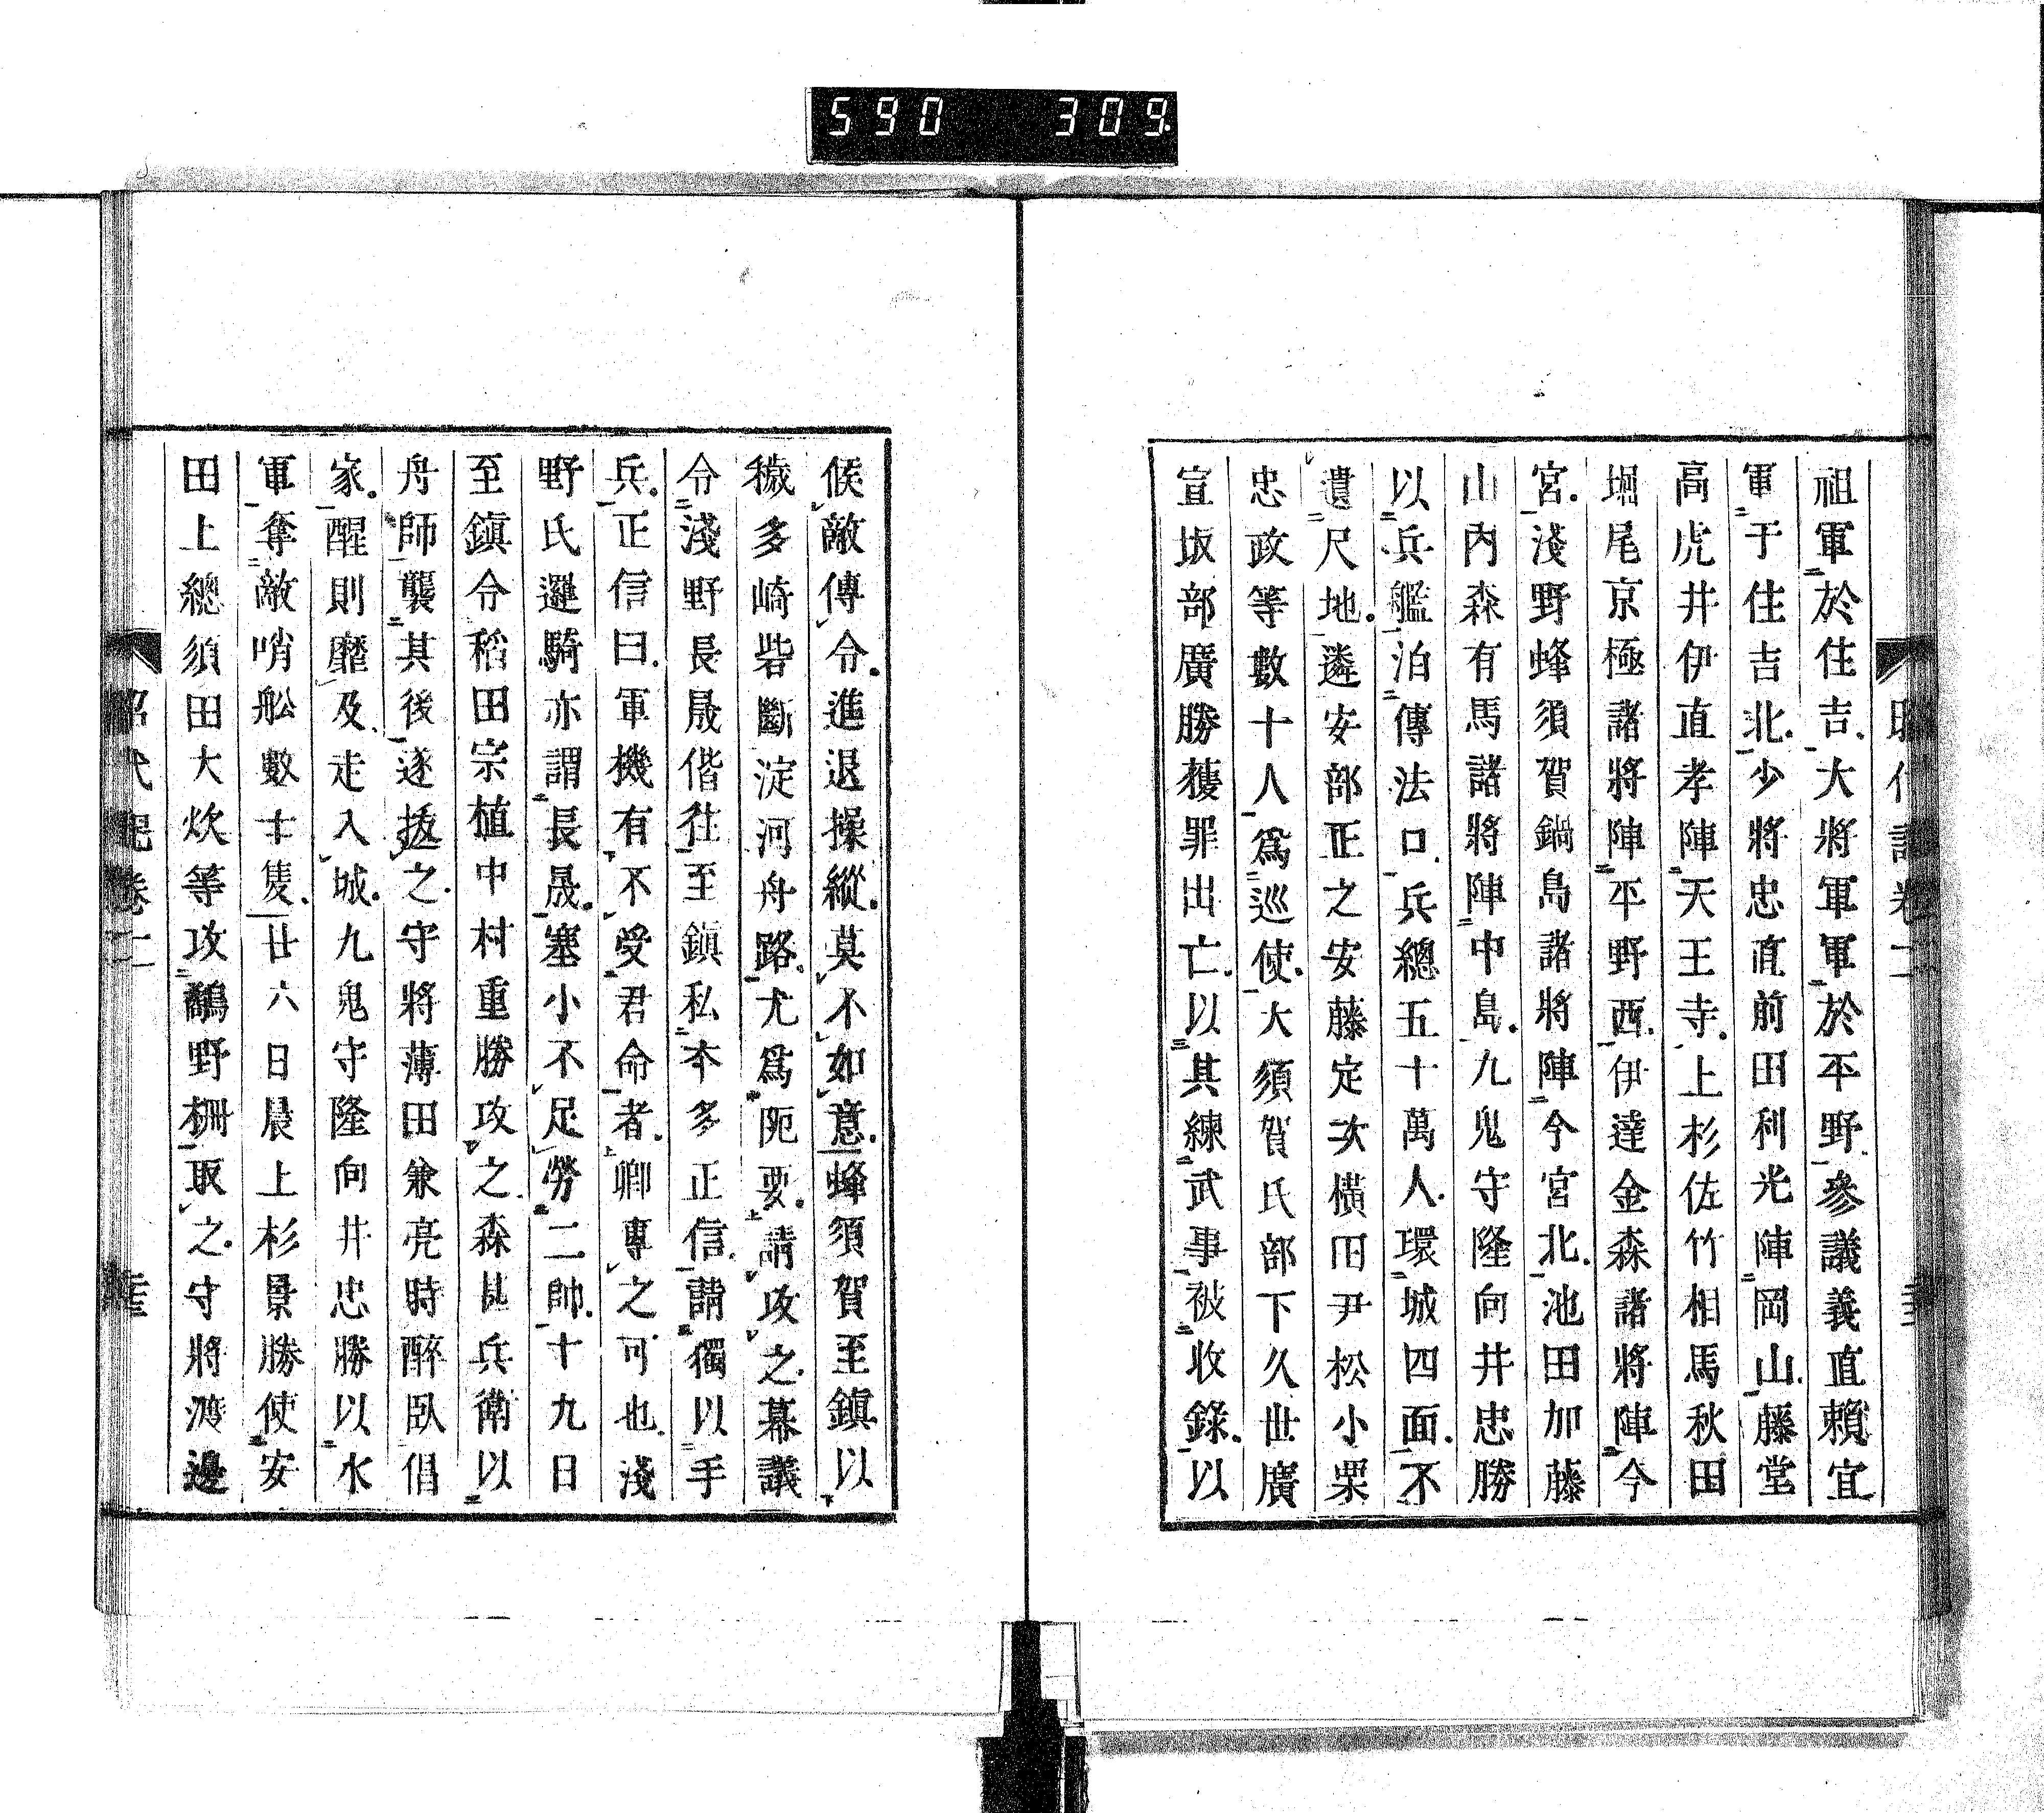 590 309
祖軍於住吉大將軍軍於平野參議義直賴宣
軍于住吉北少將忠直前田利光陣岡山藤堂
高虎井伊直孝陣天王寺上杉佐竹相馬秋田
堀尾京極諸將陣平野西伊達金森諸將陣今
宮淺野蜂須賀鍋島諸將陣今宮北池田加藤
山內森有馬諸將陣中島九鬼守隆向井忠勝
以兵艦泊傳法口兵總五十萬人環城四面不
遺尺地遴安部正之安藤定次橫田尹松小栗
忠政等數十人爲巡使大須賀氏部下久世廣
宣坂部廣勝獲罪出亡以其練武事被收錄以
候敵傳令進退操縱莫不如意蜂須賀至鎭以
穢多崎砦斷淀河舟路尤爲阨要請攻之幕議
令淺野長晟偕往至鎭私本多正信請獨以手
兵正信曰軍機有不受君命者卿專之可也淺
野氏邏騎亦謂長晟塞小不足勞二帥十九日
至鎭令稻田宗植中村重勝攻之森甚兵衛以
舟師襲其後遂拔之守將薄田兼亮時醉臥倡
家醒則靡及走入城九鬼守隆向井忠勝以水
軍奪敵哨舩數十隻廿六日晨上杉景勝使安
田上總須田大炊等攻鷸野柵取之守將渡邊
昭代記卷二